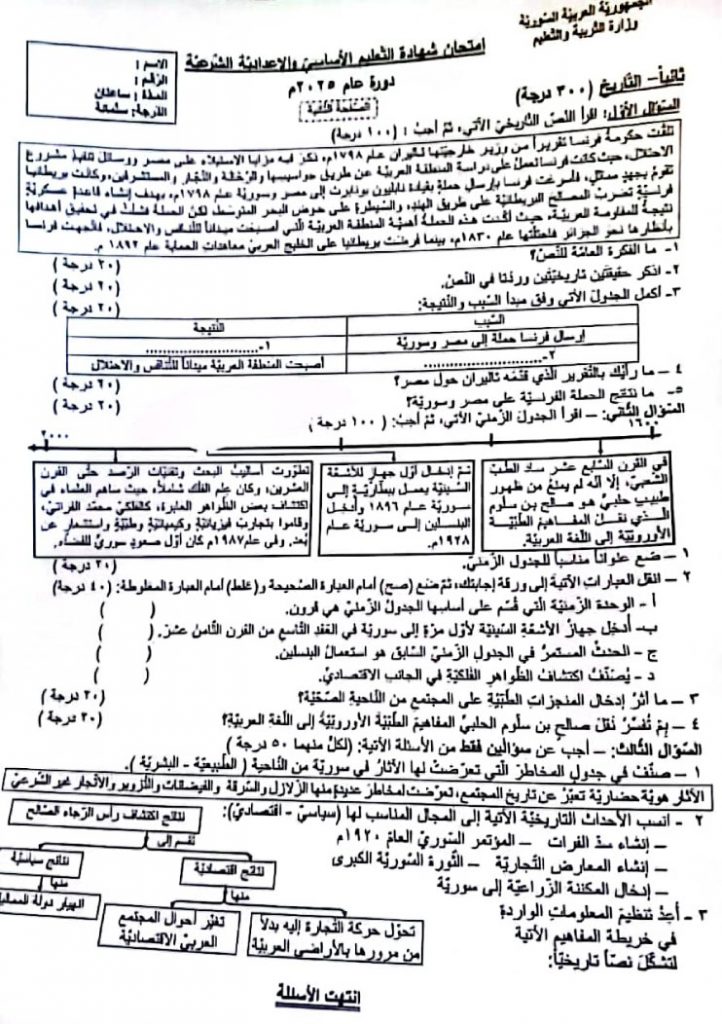 الجمهوريّة العربيّة السّوريّة
وزارة التّربية والتّعليم
امتحان شهادة التّعليم الأساسيّ والإعداديّة الشّرعيّة
دورة عام ٢٠٢٥م
الصّفحة الثّانية
الاسم :
الرّقم :
المدّة : ساعتان
الدّرجة: ستّمائة
ثانياً– التّاريخ (٣٠٠ درجة)
السّؤال الأوّل: اقرأ النّصّ التّاريخيّ الآتي، ثمّ أجب : (١٠٠ درجة)
تلقّت حكومة فرنسا تقريراً من وزير خارجيّتها تاليران عام ١٧٩٨م، ذكر فيه مزايا الاستيلاء على مصر ووسائل تنفيذ مشروع
الاحتلال، حيث كانت فرنسا تعمل على دراسة المنطقة العربيّة عن طريق جواسيسها والرّحّالة والتّجّار والمستشرقين، وكانت بريطانيا
تقوم بجهدٍ مماثل، فأسرعت فرنسا بإرسال حملةٍ بقيادة نابليون بونابرت إلى مصر وسوريّة عام ١٧٩٨م، بهدف إنشاء قاعدةٍ عسكريّةٍ
فرنسيّة تضرب المصالح البريطانيّة على طريق الهند، والسّيطرة على حوض البحر المتوسّط، لكنّ الحملة فشلت في تحقيق أهدافها
نتيجةً للمقاومة العربيّة، حيث أكّدت هذه الحملة أهميّة المنطقة العربيّة الّتي أصبحت ميداناً للتّنافس والاحتلال، فاتّجهت فرنسا
بأنظارها نحو الجزائر فاحتلّتها عام ١٨٣٠م، بينما فرضت بريطانيا على الخليج العربيّ معاهدات الحماية عام ١٨٩٢ م.
١- ما الفكرة العامّة للنّصّ؟ (٢٠ درجة)
٢- اذكر حقيقتين تاريخيّتين وردتا في النّصّ. (٢٠ درجة)
٣- أكمل الجدول الآتي وفق مبدأ السّبب والنّتيجة: (٢٠ درجة)
السّبب النّتيجة
إرسال فرنسا حملة إلى مصر وسوريّة ١-.........................
٢-......................... أصبحت المنطقة العربيّة ميداناً للتّنافس والاحتلال
٤ – ما رأيك بالتّقرير الّذي قدّمه تاليران حول مصر؟ (٢٠ درجة)
٥- ما نتائج الحملة الفرنسيّة على مصر وسوريّة؟ (٢٠ درجة)
السّؤال الثّاني: – اقرأ الجدول الزّمنيّ الآتي، ثمّ أجب: (١٠٠ درجة )
١٦٠٠ ٢٠٠٠
في القرن السّابع عشر ساد الطّبّ
الشّعبيّ، إلّا أنّه لم يمنع من ظهور
طبيبٍ حلبيٍّ هو صالح بن سلّوم
الّذي نقل المفاهيم الطّبّيّة
الأوروبّيّة إلى اللّغة العربيّة.
تمّ إدخال أوّل جهاز للأشعّة
السّينيّة يعمل ببطّاريّة إلى
سوريّة عام ١٨٩٦ وأُدخل
البنسلين إلى سوريّة عام
١٩٢٨م.
تطوّرت أساليب البحث وتقنيّات الرّصد حتّى القرن
العشرين، وكان علم الفلك شاملاً، حيث ساهم العلماء في
اكتشاف بعض الظّواهر العابرة، كالفلكيّ محمّد الفراتيّ،
وقاموا بتجارب فيزيائيّة وكيميائيّة وطبّيّة واستشعارٍ عن
بُعد. وفي عام ١٩٨٧م كان أوّل صعودٍ سوريٍّ للفضاء.
١ – ضع عنواناً مناسباً للجدول الزّمنيّ. (٢٠ درجة)
٢ – انقل العبارات الآتية إلى ورقة إجابتك، ثمّ ضع (صح) أمام العبارة الصّحيحة و(غلط) أمام العبارة المغلوطة: (٤٠ درجة)
أ – الوحدة الزّمنيّة الّتي قُسّم على أساسها الجدول الزّمنيّ هي قرون. ( )
ب- أُدخل جهاز الأشعّة السّينيّة لأوّل مرّة إلى سوريّة في العقد التّاسع من القرن الثّامن عشر. ( )
ج – الحدث المستمرّ في الجدول الزّمنيّ السّابق هو استعمال البنسلين. ( )
د – يُصنّف اكتشاف الظّواهر الفلكيّة في الجانب الاقتصاديّ. ( )
٣ – ما أثر إدخال المنجزات الطّبّيّة على المجتمع من النّاحية الصّحّيّة؟ (٢٠ درجة)
٤ – بِمَ تُفسّر نقل صالح بن سلّوم الحلبيّ المفاهيم الطّبّيّة الأوروبّيّة إلى اللّغة العربيّة؟ (٢٠ درجة)
السّؤال الثّالث: – أجب عن سؤالين فقط من الأسئلة الآتية: (لكلٍّ منهما ٥٠ درجة )
١ – صنّف في جدول المخاطر الّتي تعرّضت لها الآثار في سوريّة من النّاحية ( الطّبيعيّة – البشريّة ).
الآثار هويّة حضاريّة تعبّر عن تاريخ المجتمع، تعرّضت لمخاطر عديدةٍ منها الزّلازل والسّرقة والفيضانات والتّزوير والاتّجار غير الشّرعيّ
٢ - انسب الأحداث التّاريخيّة الآتية إلى المجال المناسب لها (سياسيّ – اقتصاديّ):
– إنشاء سدّ الفرات – المؤتمر السّوريّ العامّ ١٩٢٠م
– إنشاء المعارض التّجاريّة – الثّورة السّوريّة الكبرى
– إدخال المكننة الزّراعيّة إلى سوريّة
٣ – أعِدْ تنظيم المعلومات الواردة
في خريطة المفاهيم الآتية
لتشكّل نصّاً تاريخيّاً:
نتائج اكتشاف رأس الرّجاء الصّالح
تقسم إلى
نتائج اقتصاديّة نتائج سياسيّة
منها منها
تحوّل حركة التّجارة إليه بدلاً
من مرورها بالأراضي العربيّة
تغيّر أحوال المجتمع
العربيّ الاقتصاديّة
انهيار دولة
انتهت الأسئلة